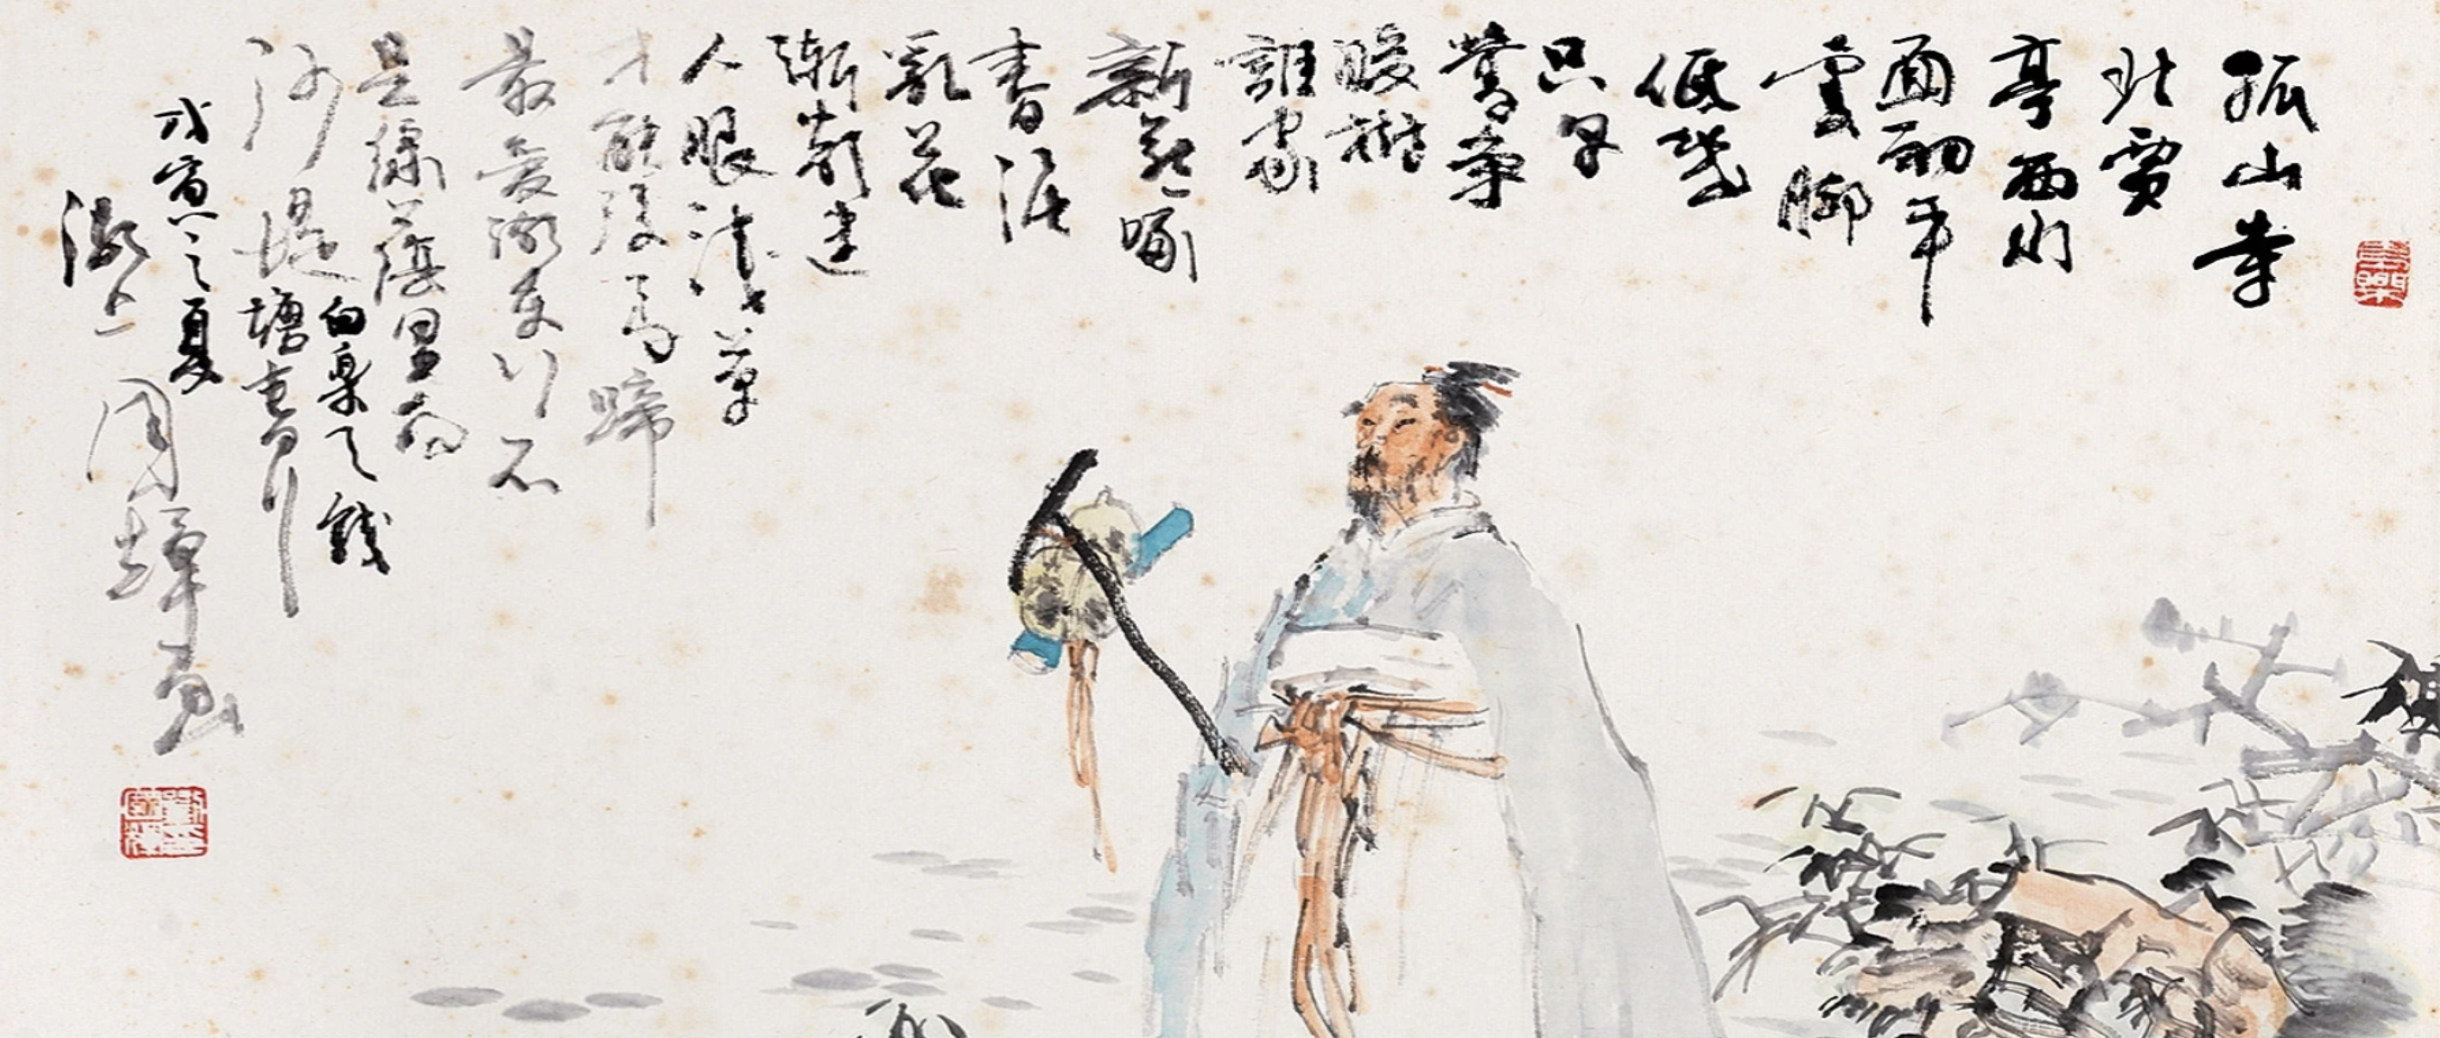 孤山寺
北賈
亭西水
面初平
雲腳
低幾
只早
鶯爭
暖樹
誰家
新燕啄
春泥
亂花
漸欲迷
人眼淺草
才能沒馬蹄
最愛湖東行不
足綠蔭里白
沙堤
白樂天錢
塘春行
戊寅之夏
湖上國輝画